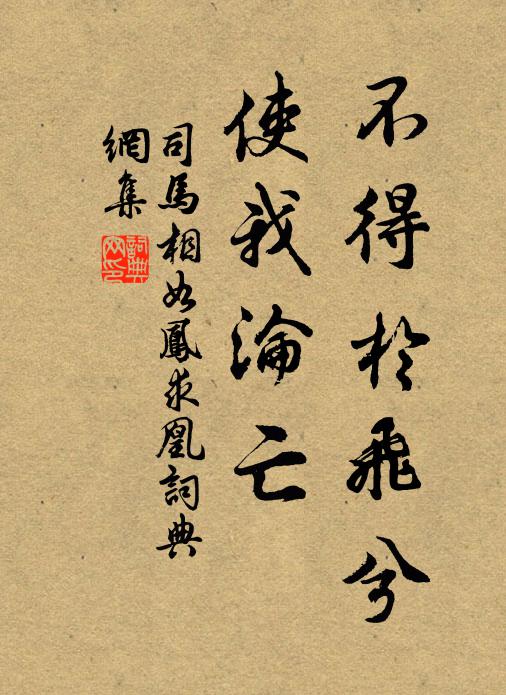 不得於飛兮
使我淪亡
司馬相如鳳求凰詞典
網集
詞典
网印